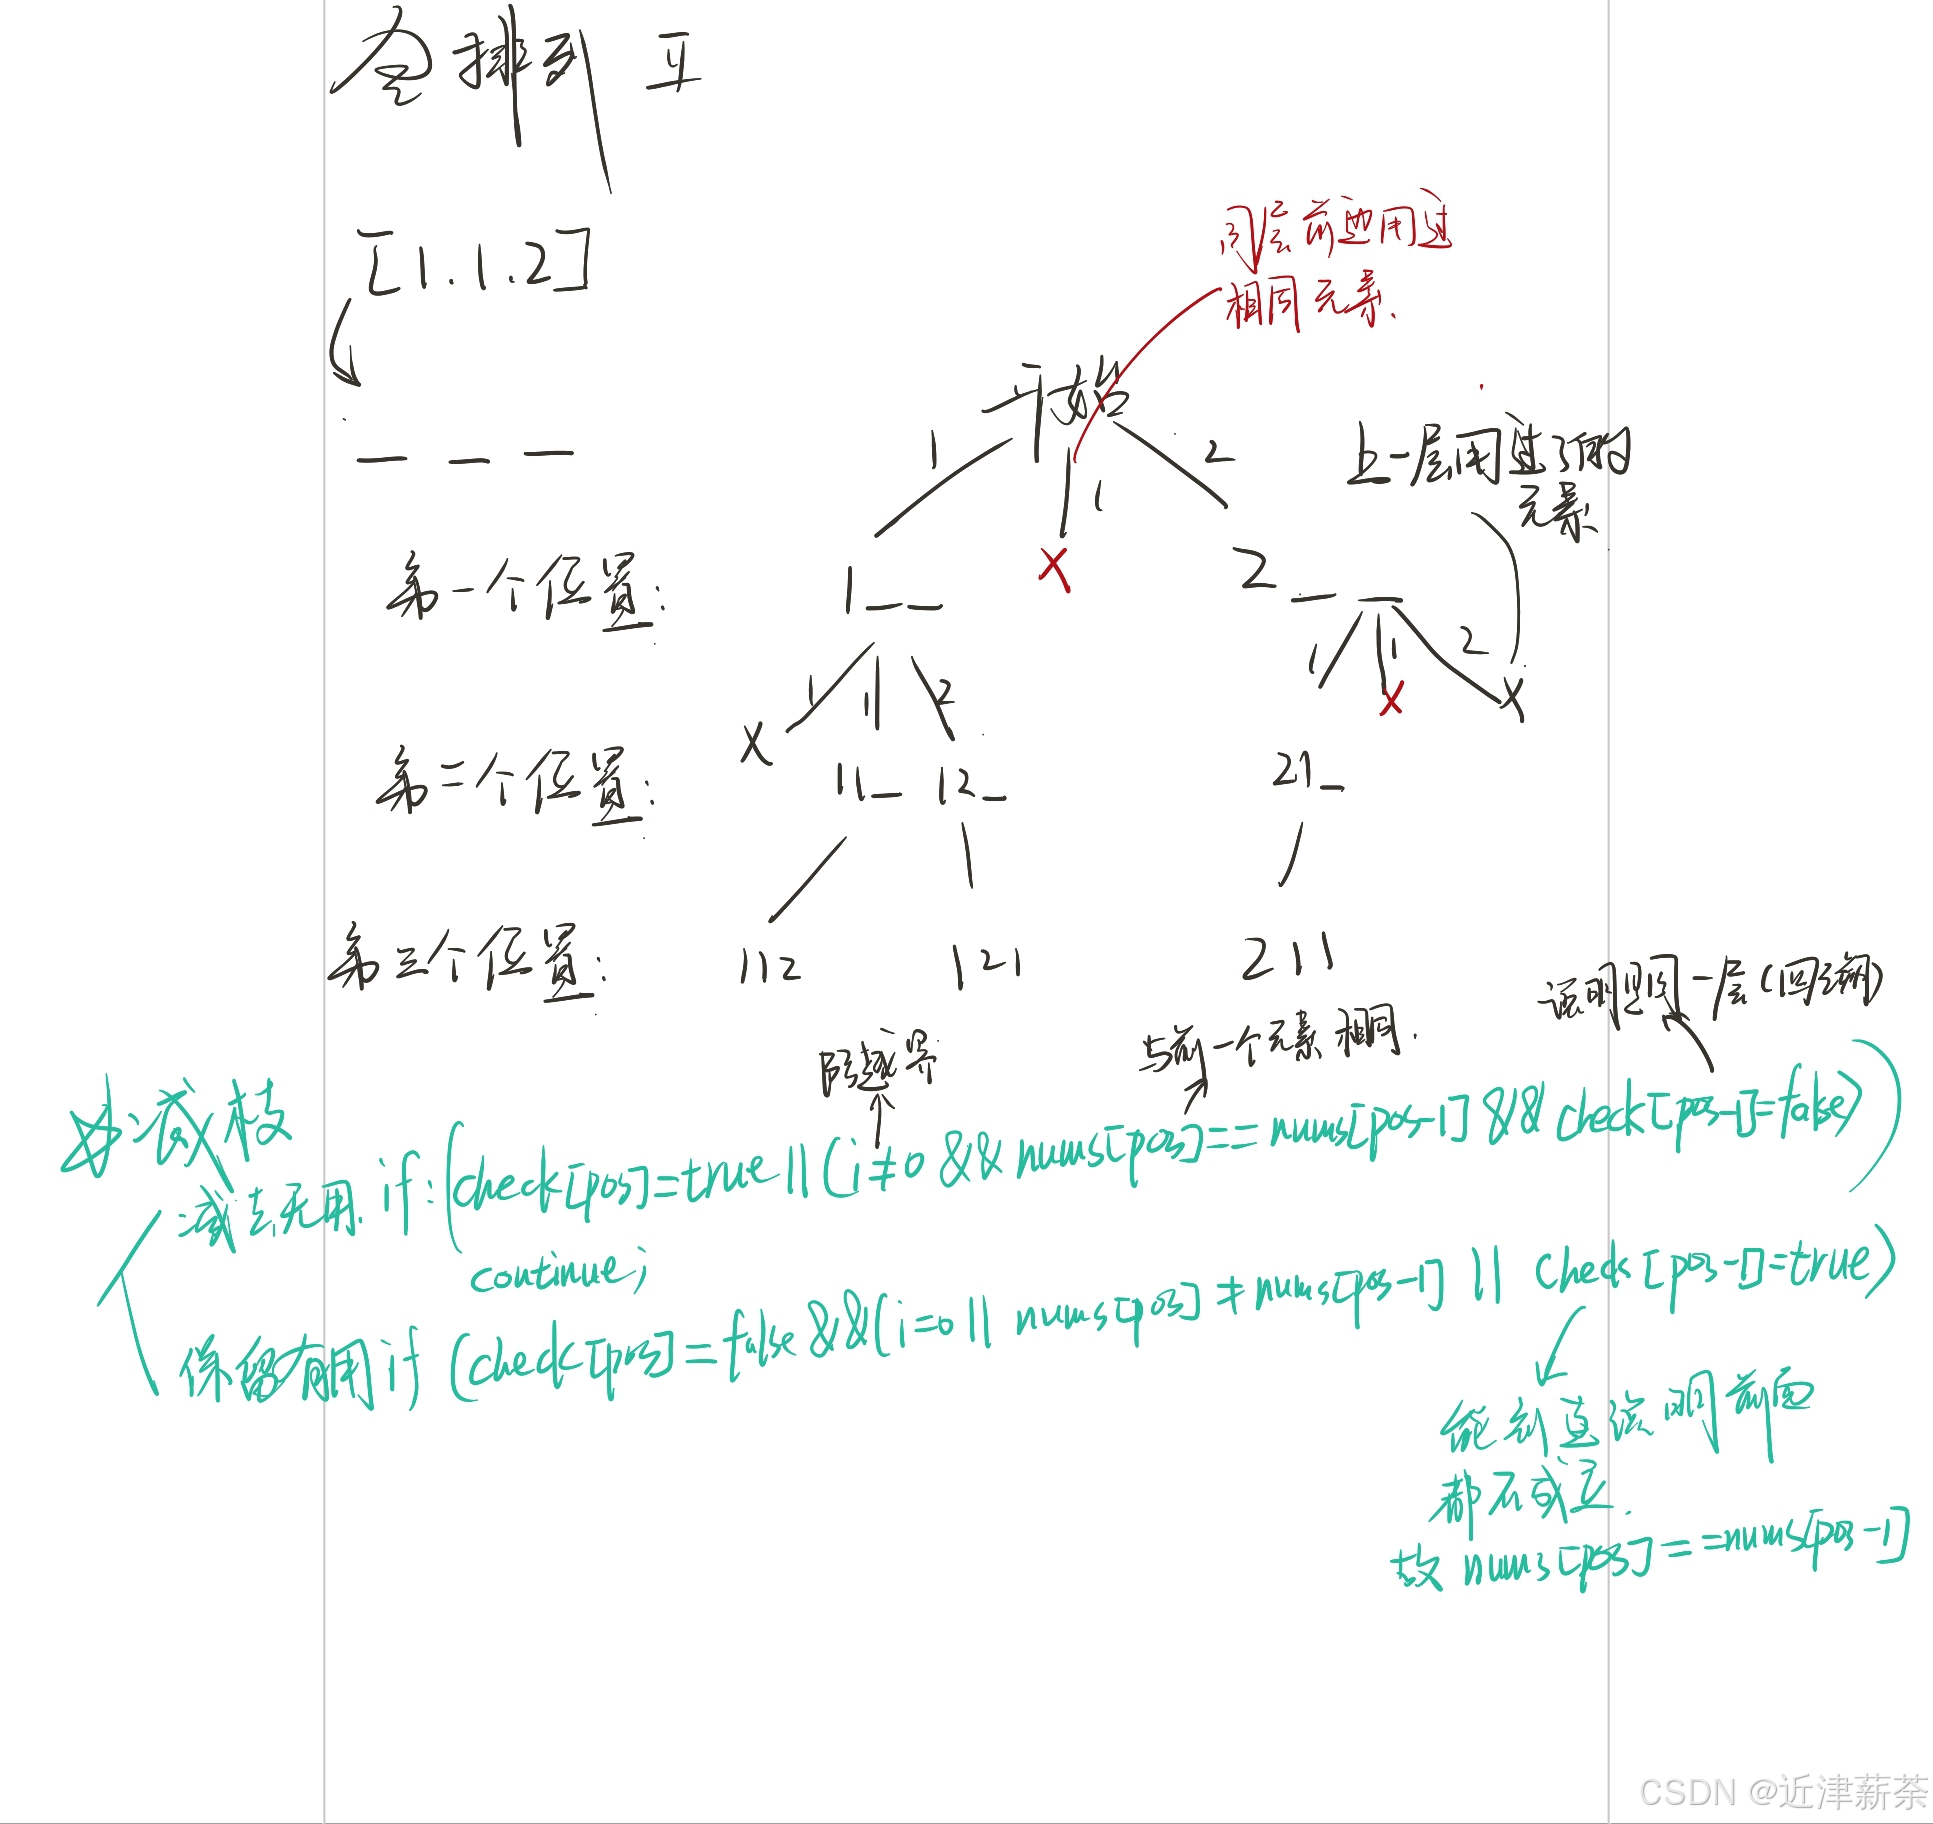 全排列 II
[1.1.2]
同层前边用过
相同元素.
开始
1
1
2
上一层用过了的
元素
第一个位置:
1_ _
X
2 _ _
1
1
2
1
1
2
X
X
X
第二个位置:
11_
12_
21_
第三个位置:
112
121
211
说明是同一层(回溯)
防越界
与前一个元素相同.
减枝
减去无用. if: (check[pos]=true || (i≠0 && nums[pos]== nums[pos-1] && check[pos-1]=false))
continue;
保留有用 if (check[pos]=false && (i=0 || nums[pos] ≠ nums[pos-1] || check[pos-1]=true)
能到这说明前面
都不成立.
故 nums[pos]==nums[pos-1]
CSDN @近津薪荼